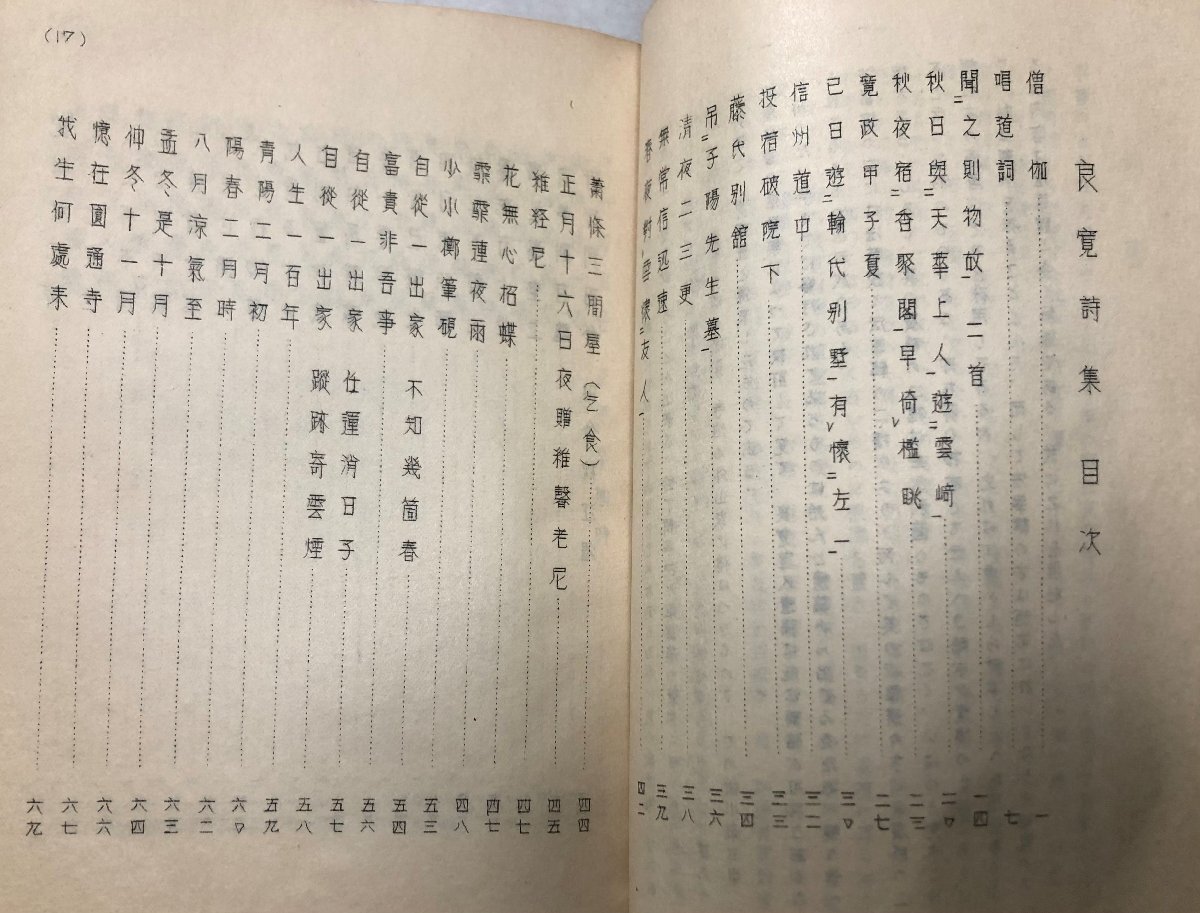 良寛詩集目次
僧伽 一
唱道詞 七
聞之則物故 二首 一四
秋日與天華上人遊雲崎 二〇
秋夜宿香聚閣早倚檻眺 二三
寛政甲子夏 二七
已日遊輪代别墅有懷左一 三〇
信州道中 三二
投宿破院下 三三
藤氏别舘 三四
吊子陽先生墓 三六
清夜二三更 三八
無常信迅速 三九
春夜對雪懷友人 四二
(17)
蕭條三間屋(乞食) 四四
正月十六日夜贈維馨老尼 四五
維経尼 四七
花無心招蝶 四七
霏霏連夜雨 四八
少小擲筆硯 五三
自從一出家 不知幾箇春 五四
富貴非吾事 五六
自從一出家 任運消日子 五七
自從一出家 蹤跡寄雲煙 五八
人生一百年 五九
青陽二月初 六〇
陽春二月時 六二
八月涼氣至 六三
孟冬是十月 六四
仲冬十一月 六六
憶在圓通寺 六七
我生何處来 六九